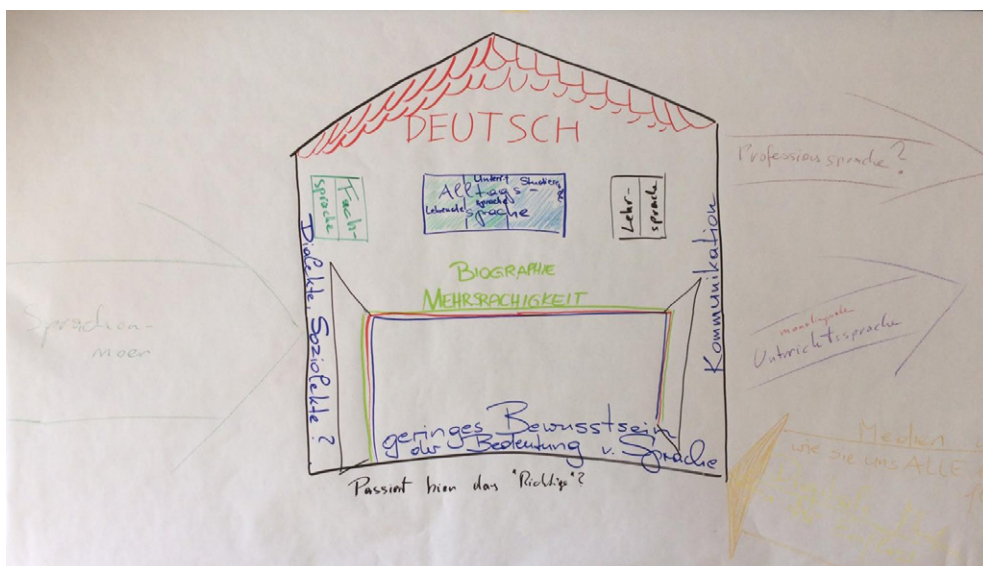 DEUTSCH
Fach-
sprache
Alltags-
sprache
Unterr.
sprache
Lehrende
Lehr-
sprache
Dialekte, Soziolekte?
Kommunikation
BIOGRAPHIE
MEHRSRACHIGKEIT
geringes Bewusstsein
der Bedeutung v. Sprache
Passiert hier das "Richtige"?
Sprachen-
meer
Professionssprache?
monolinguale
Unterrichtssprache
Medien
wie sie uns ALLE